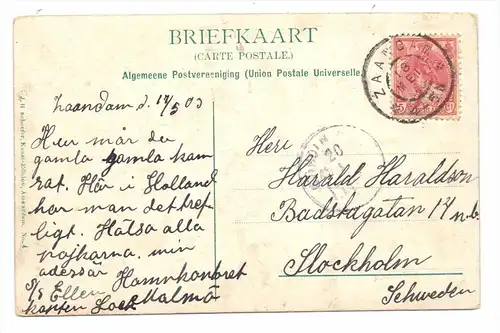 BRIEFKAART
(CARTE POSTALE.)
Algemeene Postvereeniging (Union Postale Universelle)
ZAANDAM
5 CENT
20
Zaandam d. 17/5 03
Hur mår du
gamla gamla kam
rat. Här i Holland
har man det tref
ligt. Hälsa alla
pojkarna, min
adessär Hamnkontoret
S/S Ellen Malmö
kapten
Herr
Harald Haraldson
Badstugatan 17 n.b.
Stockholm
Schweden